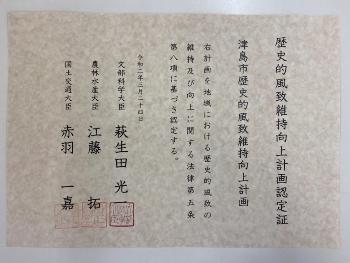 歴史的風致維持向上計画認定証
津島市歴史的風致維持向上計画
右計画を地域における歴史的風致の
維持及び向上に関する法律第五条
第八項に基づき認定する。
令和二年三月二十四日
文部科学大臣 萩生田 光一
農林水産大臣 江藤 拓
国土交通大臣 赤羽 一嘉